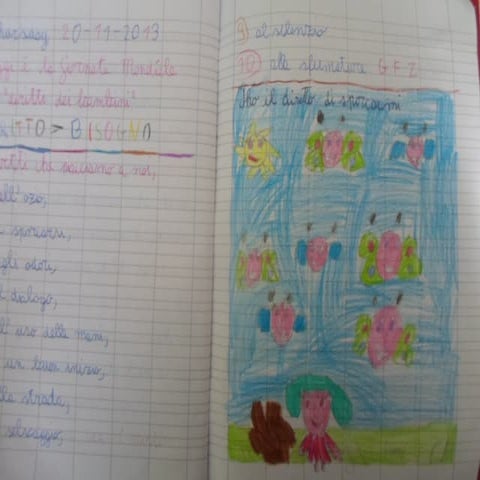 20-11-2013
è la Giornata Mondiale
diritto dei bambini"
GTO > BISOGNO
che piacciono a noi,
all'ozio,
sporcarsi,
agli odori,
dialogo,
all'uso delle mani,
un buon inizio,
alla strada,
selvaggio,
9) al silenzio
10) alle sfumature G F Z
Ho il diritto di sporcarmi